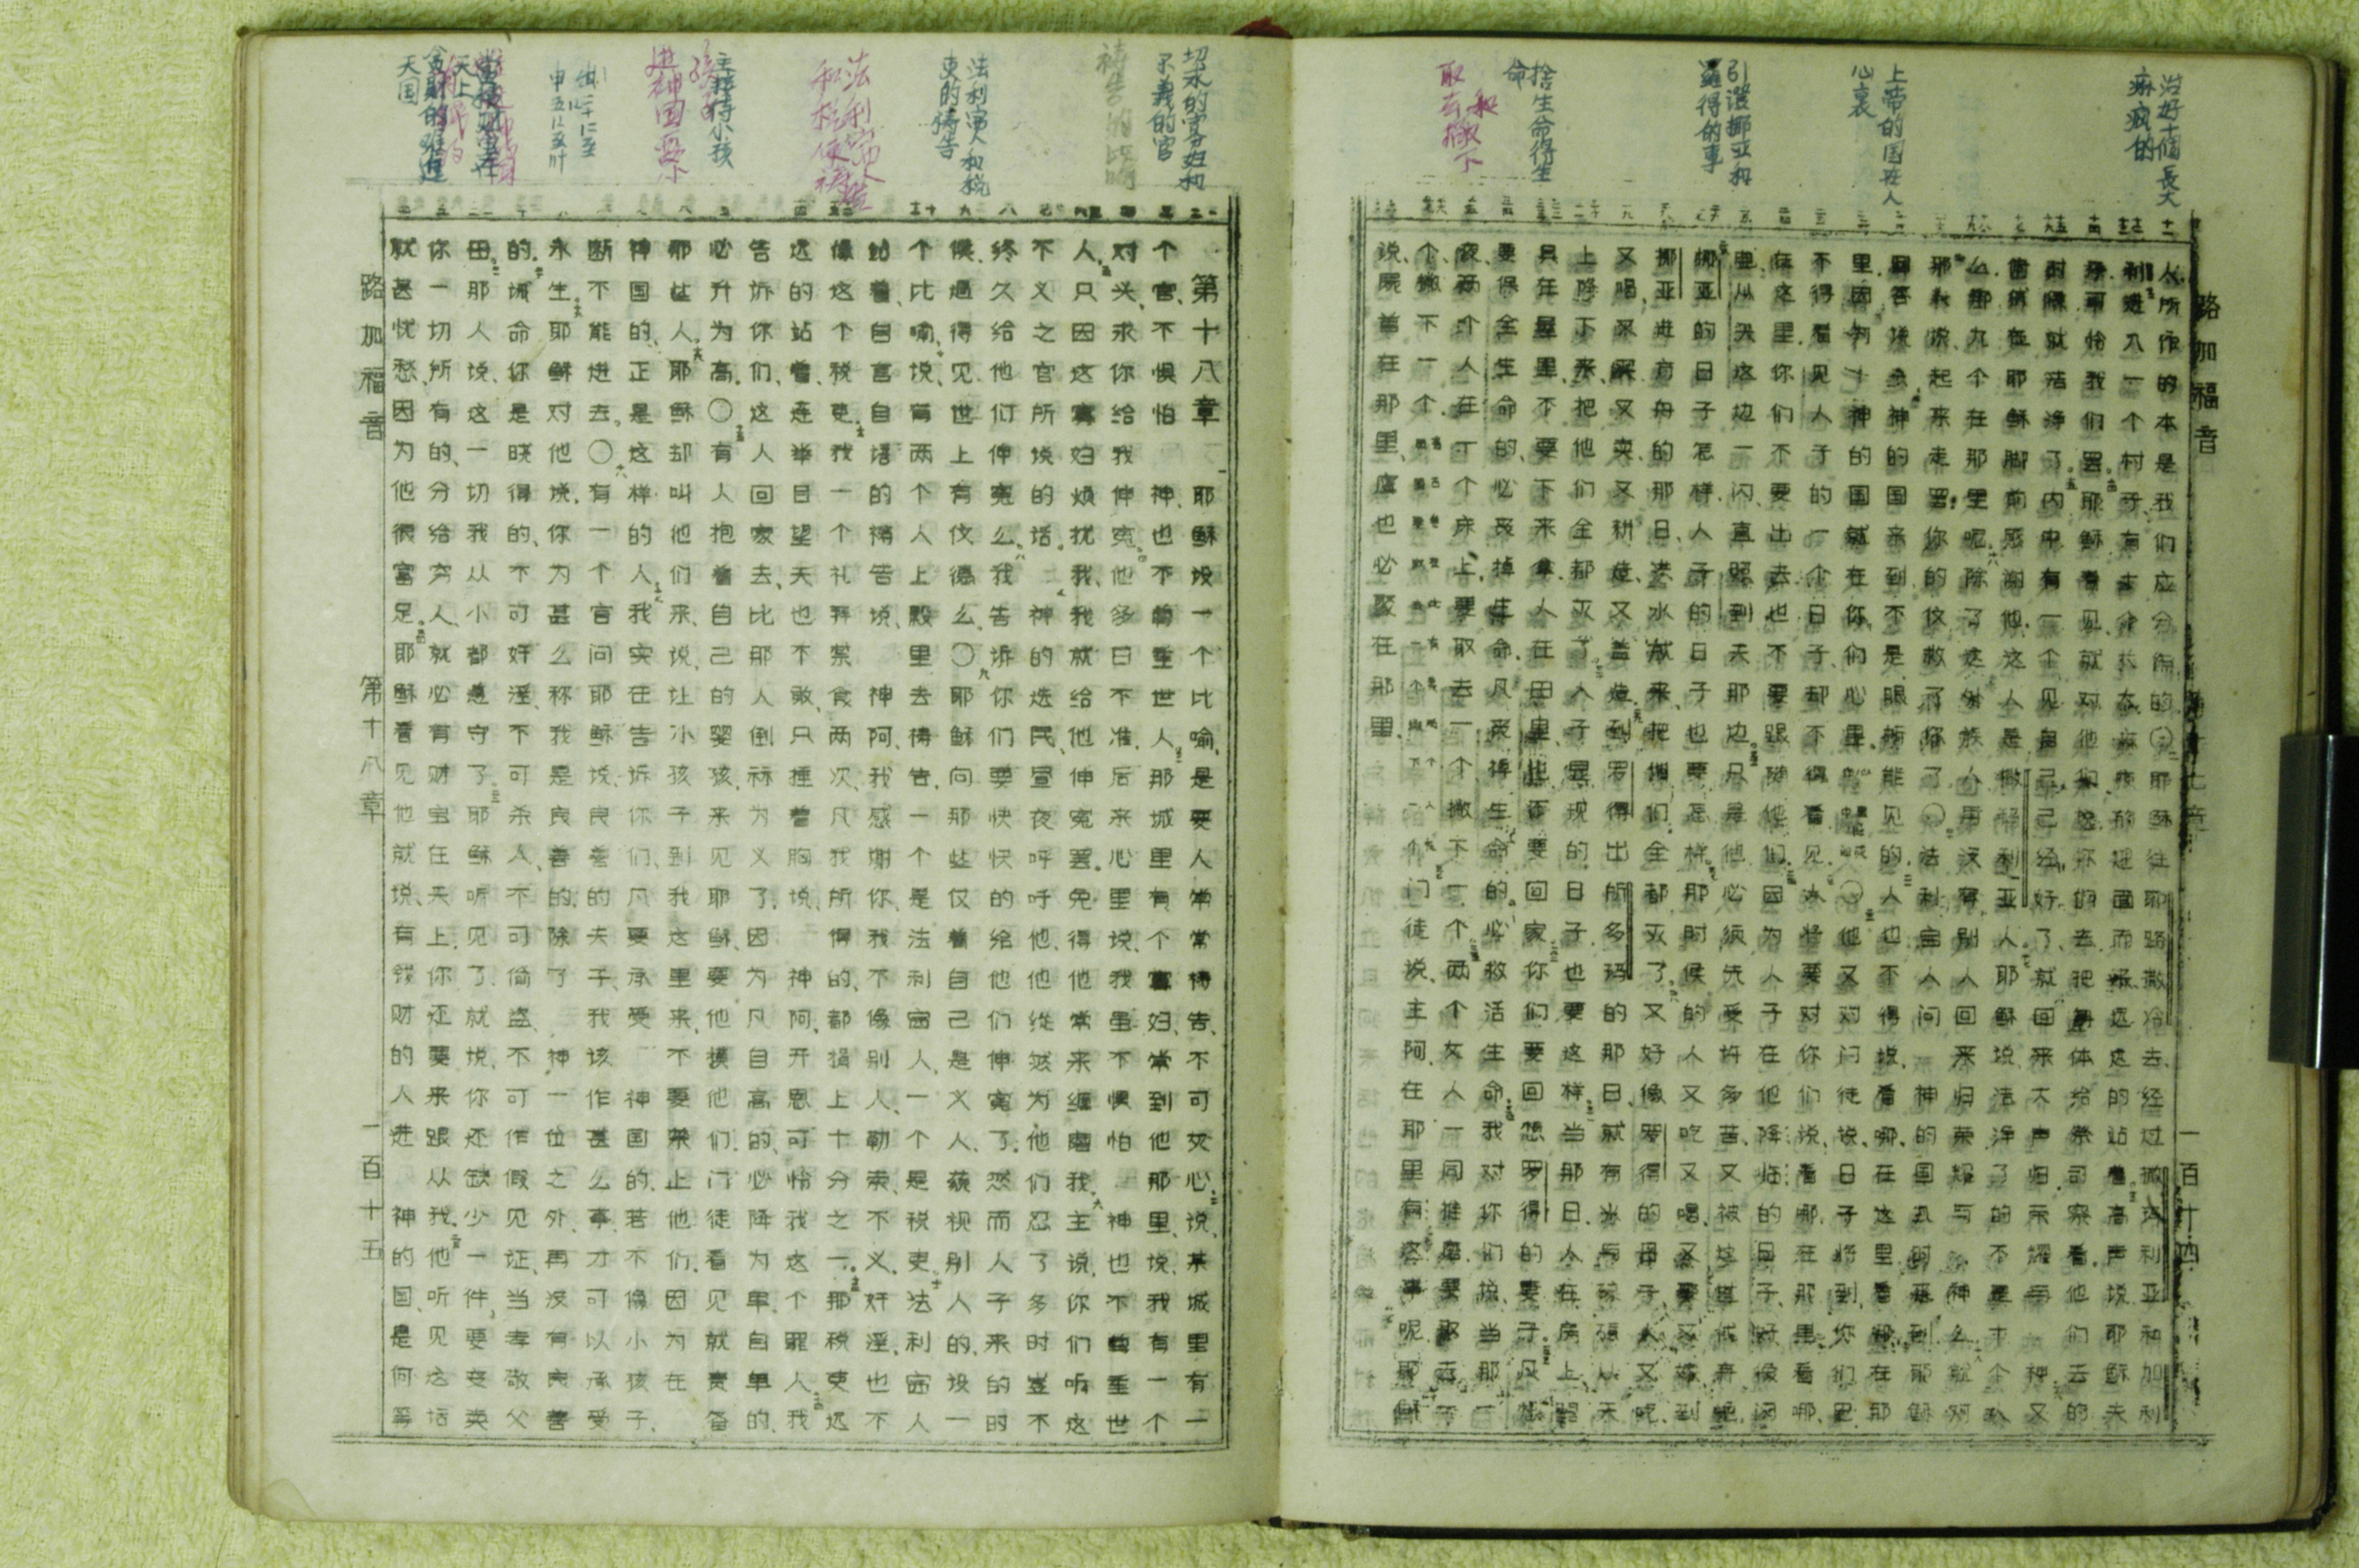 治好十個長大
麻疯的
上帝的国在人
心裏
引證挪亚和
羅得的事
捨生命得生
命
和
取去撇下
路加福音 第十七章 一百十四
人所作的本是我们应分作的〇耶稣往耶路撒冷去、经过撒玛利亚和加利
利、进入一个村子、有十个长大麻疯的迎面而来、远远的站着高声说耶稣夫
子可怜我们罢、耶稣看见、就对他们说、你们去把身体给祭司察看、他们去的
时候就洁净了、内中有一个见自己已经好了、就回来大声归荣耀与 神、又
俯伏在耶稣脚前感谢他、这人是撒玛利亚人、耶稣说、洁净了的不是十个人
么、那九个在那里呢、除了这外族人、再没有别人回来归荣耀与 神么、就对
那人说、起来走罢、你的信救了你了〇法利赛人问 神的国几时来到、耶稣
回答说、 神的国来到不是眼所能见的、人也不得说、看哪在这里、看哪在那
里、因为 神的国就在你们心里〇他又对门徒说、日子将到、你们
不得看见人子的一个日子、却不得看见、人将要对你们说、看哪在那里、看哪
在这里、你们不要出去、也不要跟随他们、因为人子在他降临的日子、好像闪
电从天这边一闪、直照到天那边、只是他必须先受许多苦、又被这世代弃绝、
挪亚的日子怎样、人子的日子也要怎样、那时候的人又吃又喝、又娶又嫁、到
挪亚进方舟的那日、洪水就来、把他们全都灭了、又好像罗得的日子、人又吃
又喝、又买又卖、又耕造、又盖造、到罗得出所多玛的那日、就有火与硫磺从天
上降下来、把他们全都灭了、人子显现的日子、也要这样、当那日、人在房上、器
具在屋里、不要下来拿、人在田里、也不要回家、你们要回想罗得的妻子、凡想
要保全生命的、必丧掉生命、凡丧掉生命的、必救活生命、我对你们说、当那一
夜、两个人在一个床上、要取去一个撇下一个、两个女人一同推磨、要取去一
个、撇下一个、门徒说、主阿、在那里有这事呢、耶稣
说、尸首在那里、鹰也必聚在那里、
切求的寡妇和
不義的官
祷告的比喻
法利賽人和税
吏的祷告
法利赛人
和税吏祷告
主接待小孩
进神国要小孩
出二十12至
申五16至
天上
贪财的难进
天国
第十八章 耶稣设一个比喻、是要人常常祷告、不可灰心、说、某城里有一
个官、不惧怕 神、也不尊重世人、那城里有个寡妇、常到他那里、说、我有一个
对头、求你给我伸冤、他多日不准、后来心里说、我虽不惧怕 神、也不尊重世
人、只因这寡妇烦扰我、我就给他伸冤罢、免得他常来缠磨我、主说、你们听这
不义之官所说的话、 神的选民、昼夜呼吁他、他纵然为他们忍了多时、岂不
终久给他们伸冤么、我告诉你们、要快快的给他们伸冤了、然而人子来的时
候、遇得见世上有信德么、〇耶稣向那些仗着自己是义人、藐视别人的、设一
个比喻、说、有两个人上殿里去祷告、一个是法利赛人、一个是税吏、法利赛人
站着、自言自语的祷告说、 神阿、我感谢你、我不像别人、勒索、不义、奸淫、也不
像这个税吏、我一个礼拜禁食两次、凡我所得的、都捐上十分之一、那税吏远
远的站着、连举目望天也不敢、只捶着胸说、 神阿、开恩可怜我这个罪人、我
告诉你们、这人回家去、比那人倒祘为义了、因为凡自高的、必降为卑、自卑的、
必升为高、〇有人抱着自己的婴孩、来见耶稣、要他摸他们、门徒看见就责备
那些人、耶稣却叫他们来、说、让小孩子到我这里来、不要禁止他们、因为在
神国的、正是这样的人、我实在告诉你们、凡要承受 神国的、若不像小孩子、
断不能进去、〇有一个官问耶稣说、良善的夫子、我该作甚么事、才可以承受
永生、耶稣对他说、你为甚么称我是良善的、除了 神一位之外、再没有良善
的、诫命你是晓得的、不可奸淫、不可杀人、不可偷盗、不可作假见证、当孝敬父
母、那人说、这一切我从小都遵守了、耶稣听见了、就说、你还缺少一件、要变卖
你一切所有的、分给穷人、就必有财宝在天上、你还要来跟从我、他听见这话
就甚忧愁、因为他很富足、耶稣看见他就说、有钱财的人进 神的国、是何等
路加福音 第十八章 一百十五